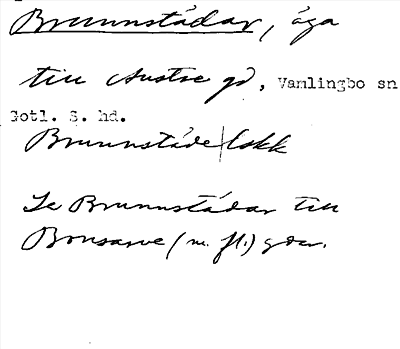 Brunnstädar, äga
till Austre gd, Vamlingbo sn
Gotl. S. hd.
Brunnstäde|lokk
Se Brunnstädar till
Bonsarve (m. fl.) gdar.